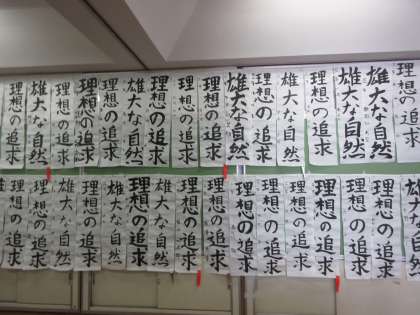 理想の追求
雄大な自然
雄大な自然
理想の追求
雄大な自然
理想の追求
雄大な自然
理想の追求
理想の追求
理想の追求
雄大な自然
理想の追求
理想の追求
理想の追求
雄大な自然
理想の追求
雄大な自然
理想の追求
理想の追求
理想の追求
理想の追求
理想の追求
理想の追求
理想の追求
理想の追求
雄大な自然
理想の追求
雄大な自然
理想の追求
雄大な自然
理想の追求
理想の追求